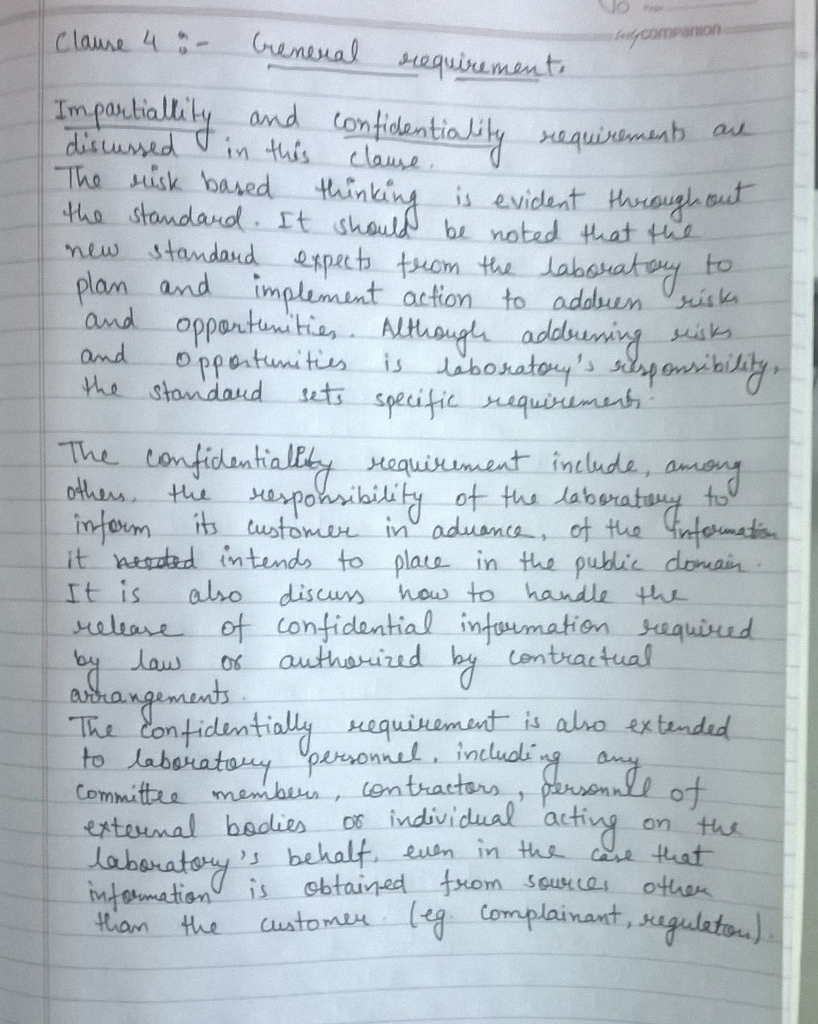 No
mycompanion
Clause 4 :- General requirement.
Impartiallity and confidentiality requirements are
discussed in this clause.
The risk based thinking is evident throughout
the standard. It should be noted that the
new standard expects from the laboratory to
plan and implement action to address risk
and opportunities. Although addressing risks
and opportunities is laboratory's responsibility,
the standard sets specific requirements.
The confidentiality requirement include, among
others, the responsibility of the laboratory to
inform its customer in advance, of the information
it needed intends to place in the public domain.
It is also discuss how to handle the
release of confidential information required
by law or authorized by contractual
arrangements.
The confidentially requirement is also extended
to laboratory personnel, including any
committee members, contractors, personnel of
external bodies or individual acting on the
laboratory's behalf, even in the case that
information is obtained from sources other
than the customer (eg. complainant, regulators).